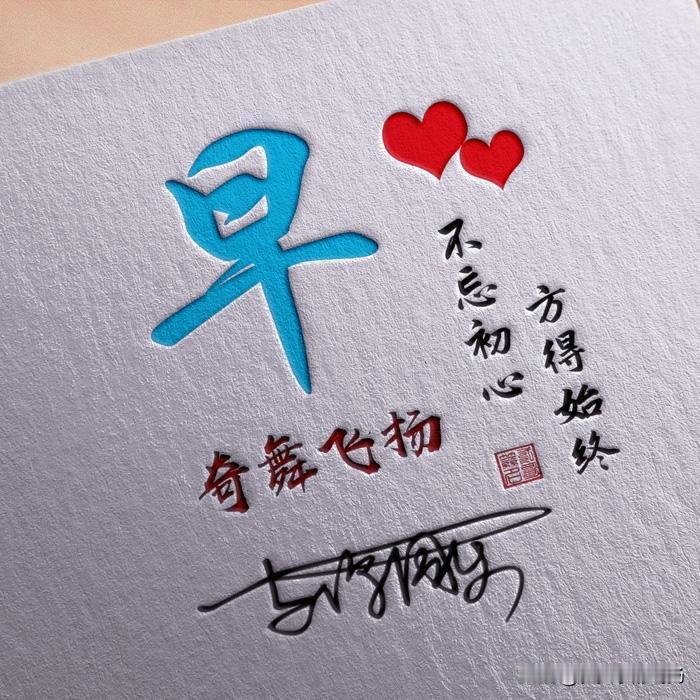 早
不忘初心
方得始终
奇舞飞扬